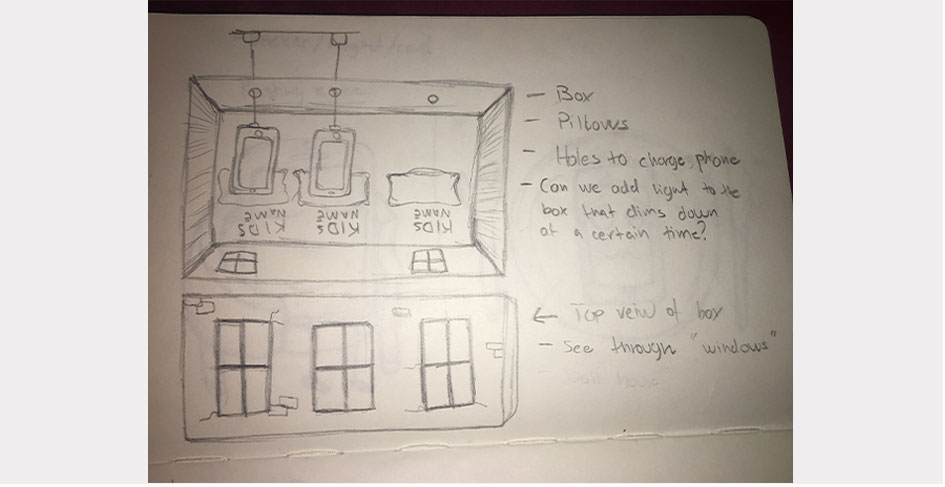 - Box
- Pillows
- Holes to charge phone
- Can we add light to the
box that dims down
at a certain time?
KIDS
NAME
KIDS
NAME
KIDS
NAME
← Top veiw of box
- See through "windows"